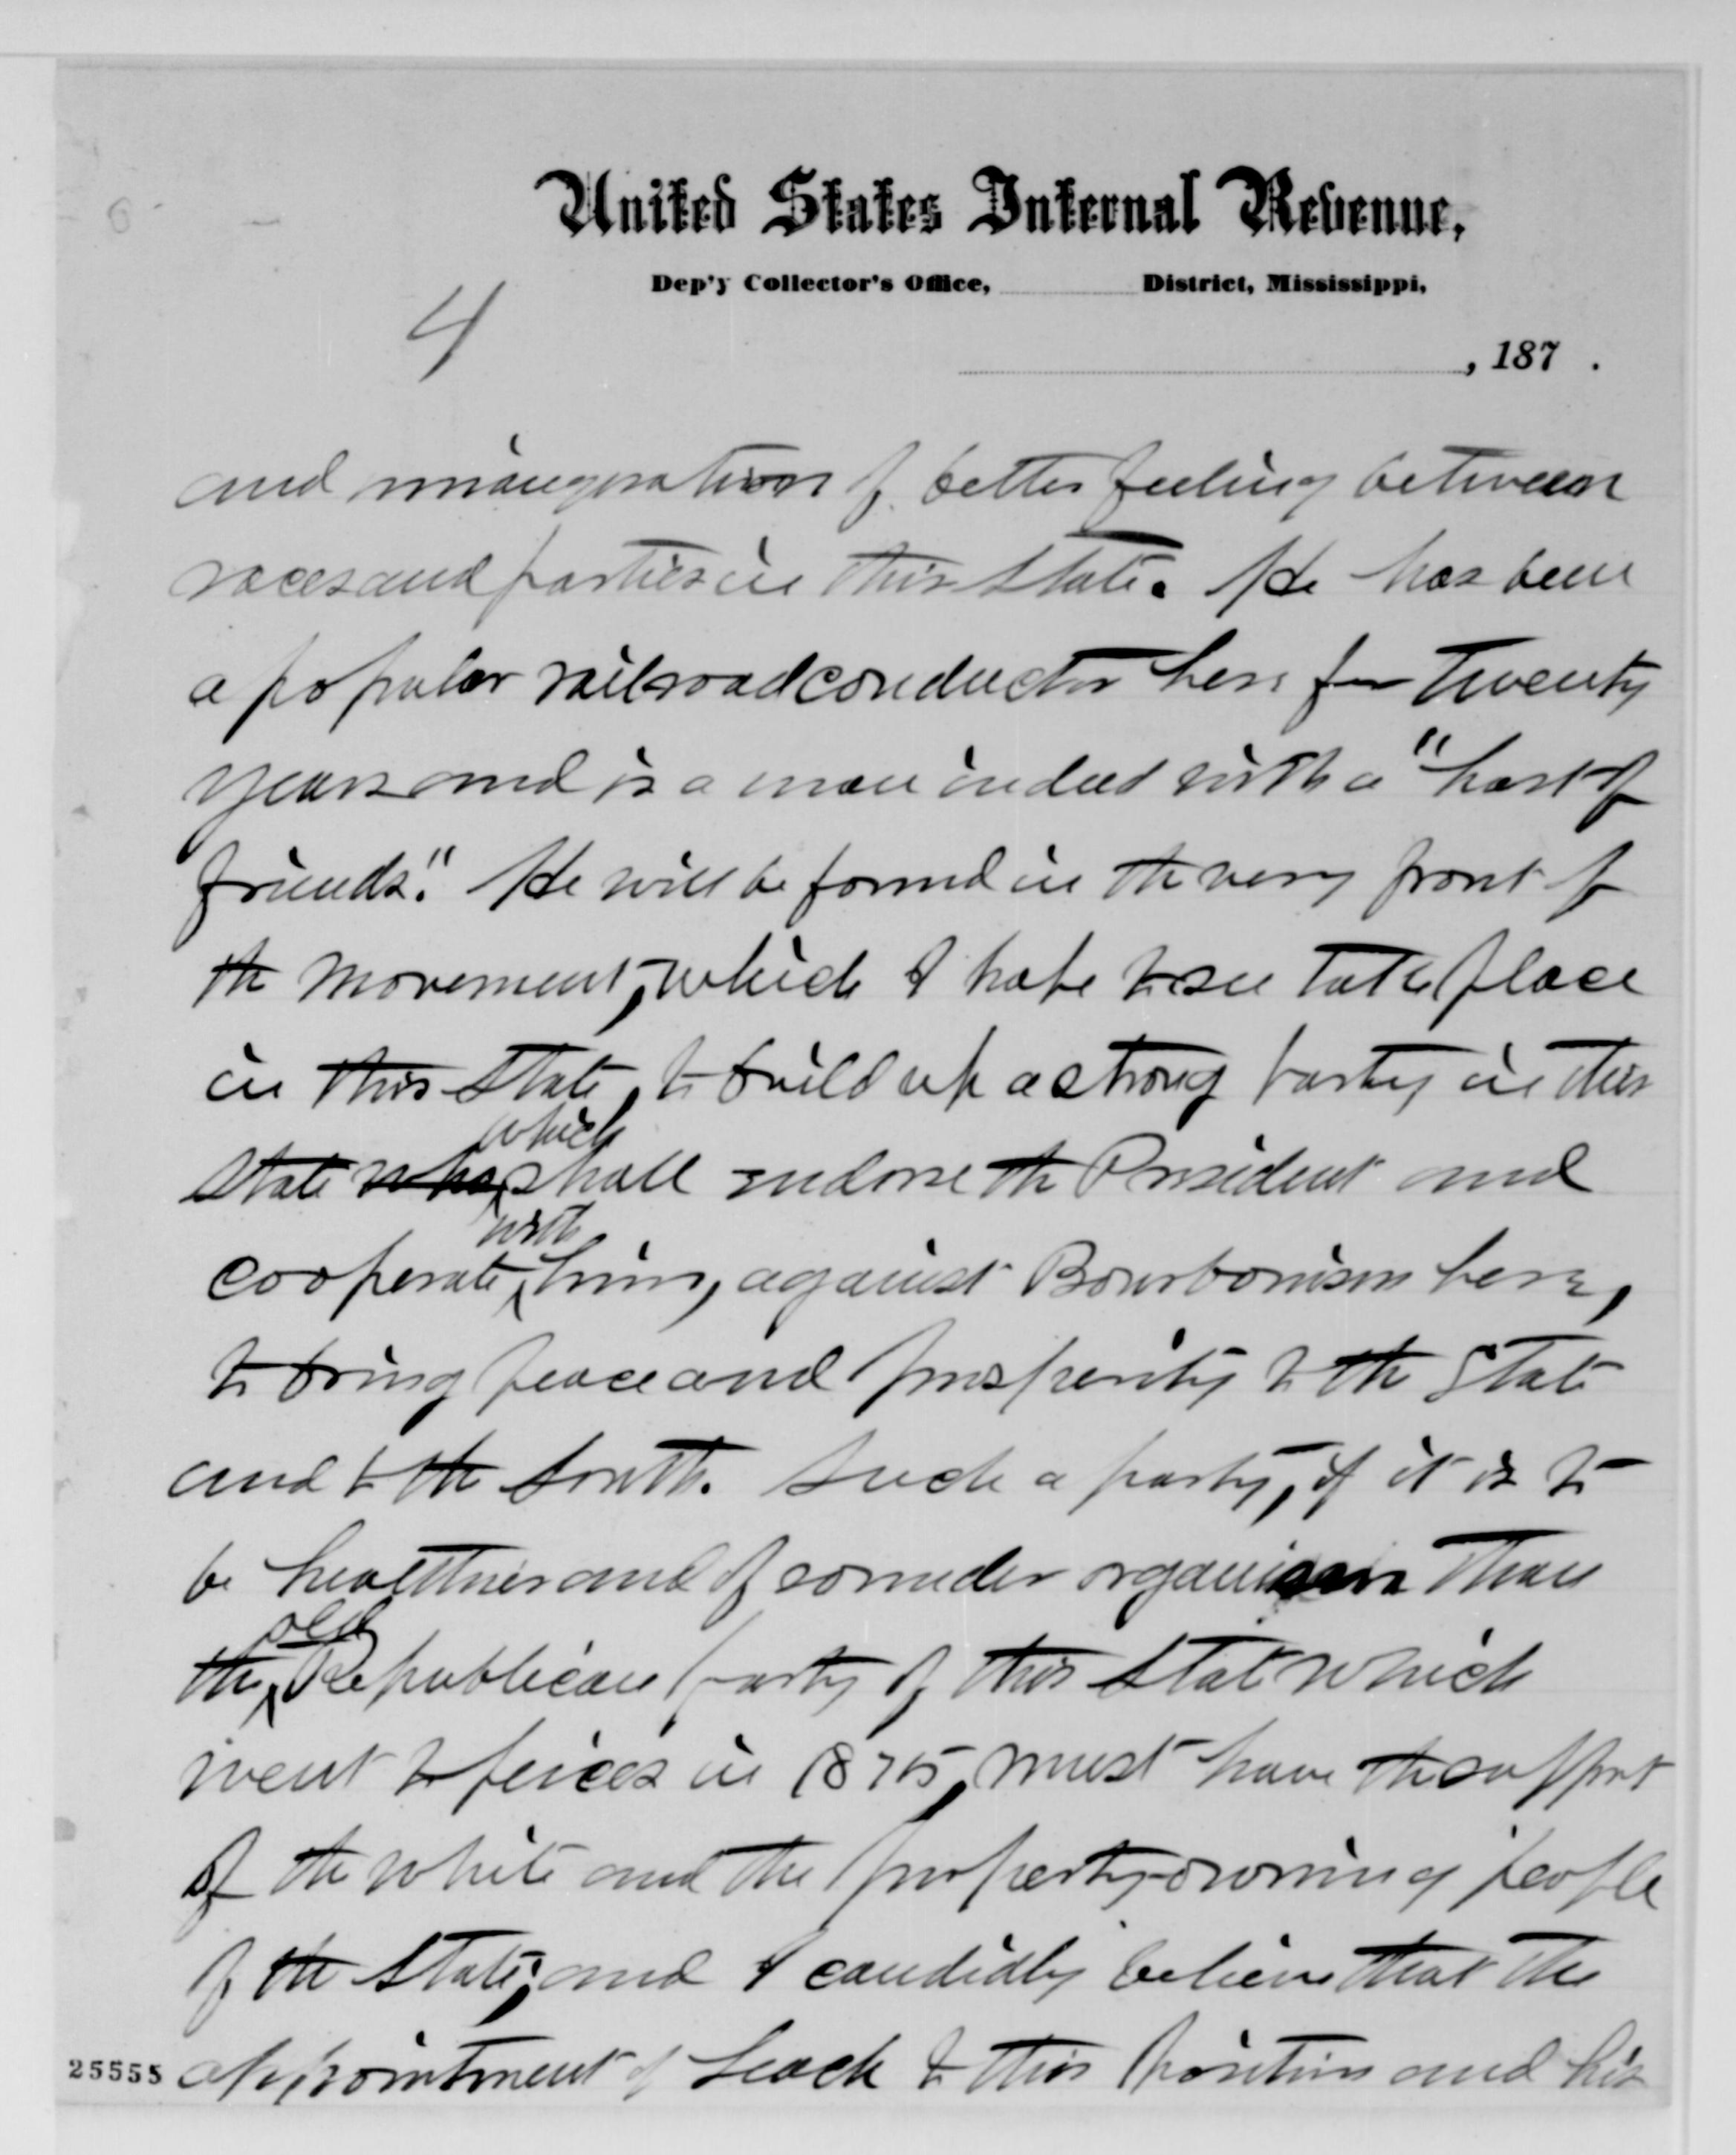 United States Internal Revenue,
Dep'y Collector's Office, District, Mississippi,
4
, 187 .
and inauguration of better feeling between
races and parties in this State. He has been
a popular railroad conductor here for twenty
years and is a man indeed with a "host of
friends." He will be found in the very front of
the movement, which I hope to see take place
in this State, to build up a strong party in this
which
State who shall endorse the President and
with
cooperate him, against Bourbonism here,
to bring peace and prosperity to the State
and to the South. Such a party, if it is to
be healthier and of sounder organism than
old
the Republican party of this State which
went to pieces in 1875, must have the support
of the white and the property-owning people
of the State; and I candidly believe that the
25555 appointment of Leach to this position and his